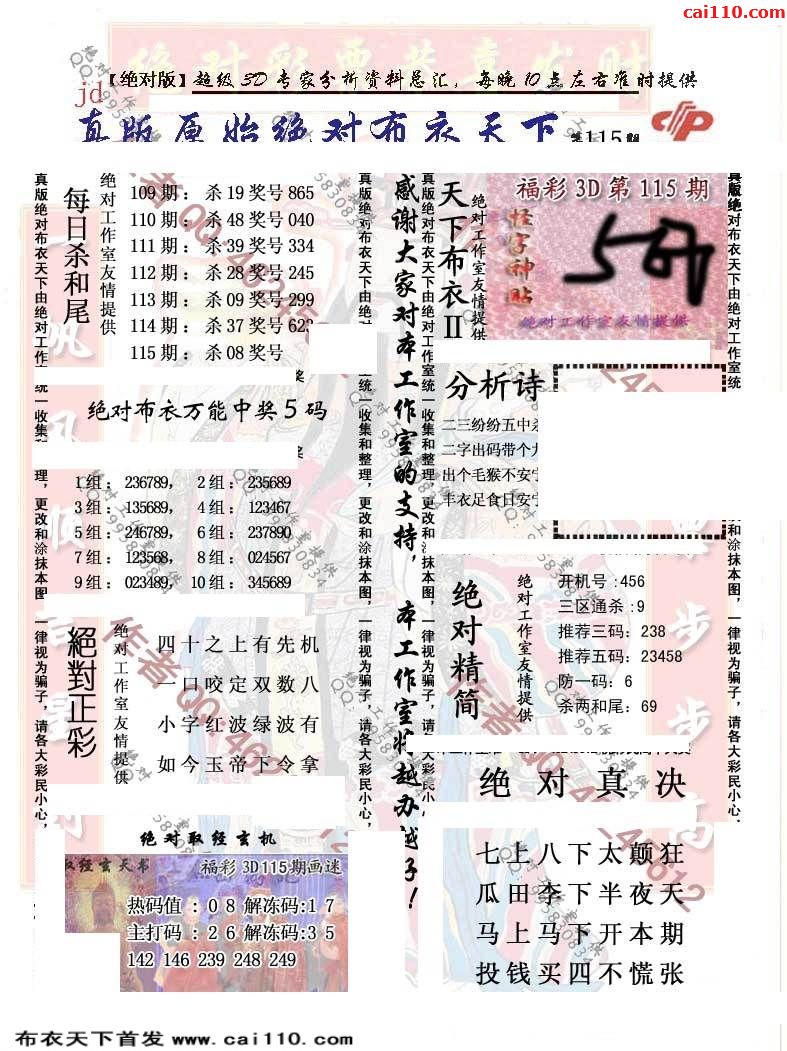 cai110.com
【绝对版】超级3D专家分析资料总汇，每晚10点左右准时提供
jd
真版原始绝对布衣天下
第115期
每日杀和尾
绝对工作室友情提供
109期：杀19奖号865
110期：杀48奖号040
111期：杀39奖号334
112期：杀28奖号245
113期：杀09奖号299
114期：杀37奖号623
115期：杀08奖号
绝对布衣万能中奖5码
1组：236789， 2组：235689
3组：135689， 4组：123467
5组：246789， 6组：237890
7组：123568， 8组：024567
9组：023489， 10组：345689
絕對正彩
绝对工作室友情提供
四十之上有先机
一口咬定双数八
小字红波绿波有
如今玉帝下令拿
绝对取经玄机
取经玄天书
福彩3D115期画迷
热码值：08解冻码:17
主打码：26解冻码:35
142 146 239 248 249
感谢大家对本工作室的支持，本工作室将越办越好！
天下布衣II
绝对工作室友情提供
福彩3D第115期
怪字神贴
绝对工作室友情提供
分析诗
二三纷纷五中杀
二字出码带个大
出个毛猴不安宁
丰衣足食日安宁
绝对精简
绝对工作室友情提供
开机号:456
三区通杀:9
推荐三码：238
推荐五码：23458
防一码：6
杀两和尾：69
绝对真决
七上八下太颠狂
瓜田李下半夜天
马上马下开本期
投钱买四不慌张
真版绝对布衣天下由绝对工作室统一收集和整理，更改和涂抹本图，一律视为骗子，请各大彩民小心，
布衣天下首发 www.cai110.com